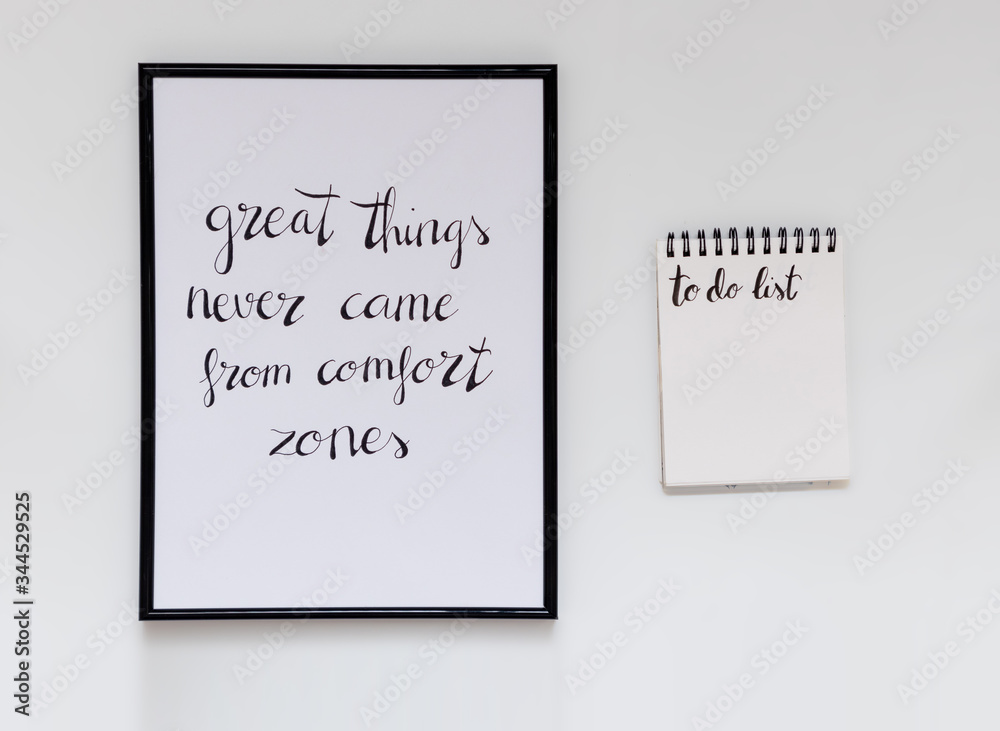 great things
never came
from comfort
zones
to do list
Adobe Stock | #344529525